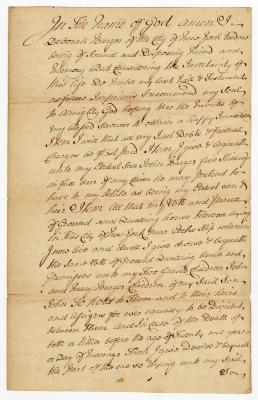 In The Name of God amen I
Deborah Burger of the City of New York Widow
being of Sound and Disposing Mind and
Memory but Considering the Incertainty of
this life Do make my last Will & Testament
as follows Imprimis I recommend my Soul
to Almighty God hoping thro the Merits of
my blessed Saviour to obtain a happy
Item I will that all my Just Debts & funeral
Charges be first Paid Item I give & bequeath
unto my Eldest Son John Burger five Shillings
in full bar of any claim he may pretend to
have to my Estate as being my Eldest Son &
heir Item all that my Lott and Parcel
of Ground and Dwelling house thereon lying
in this City of New York near wherein
I now live and dwell I give devise & bequeath
the Same Lott of Ground Dwelling house and
Premisses unto my two Grand Children John
and Burger Children of my Said Son
John To hold to Them and to their heirs
and assigns for ever equally to be Divided
between Them and In Case of the Death of
both or Either before the age of Twenty one years
or Day of marriage Then I give devise & bequeath
the Part of the one so Dying unto my Said
Son